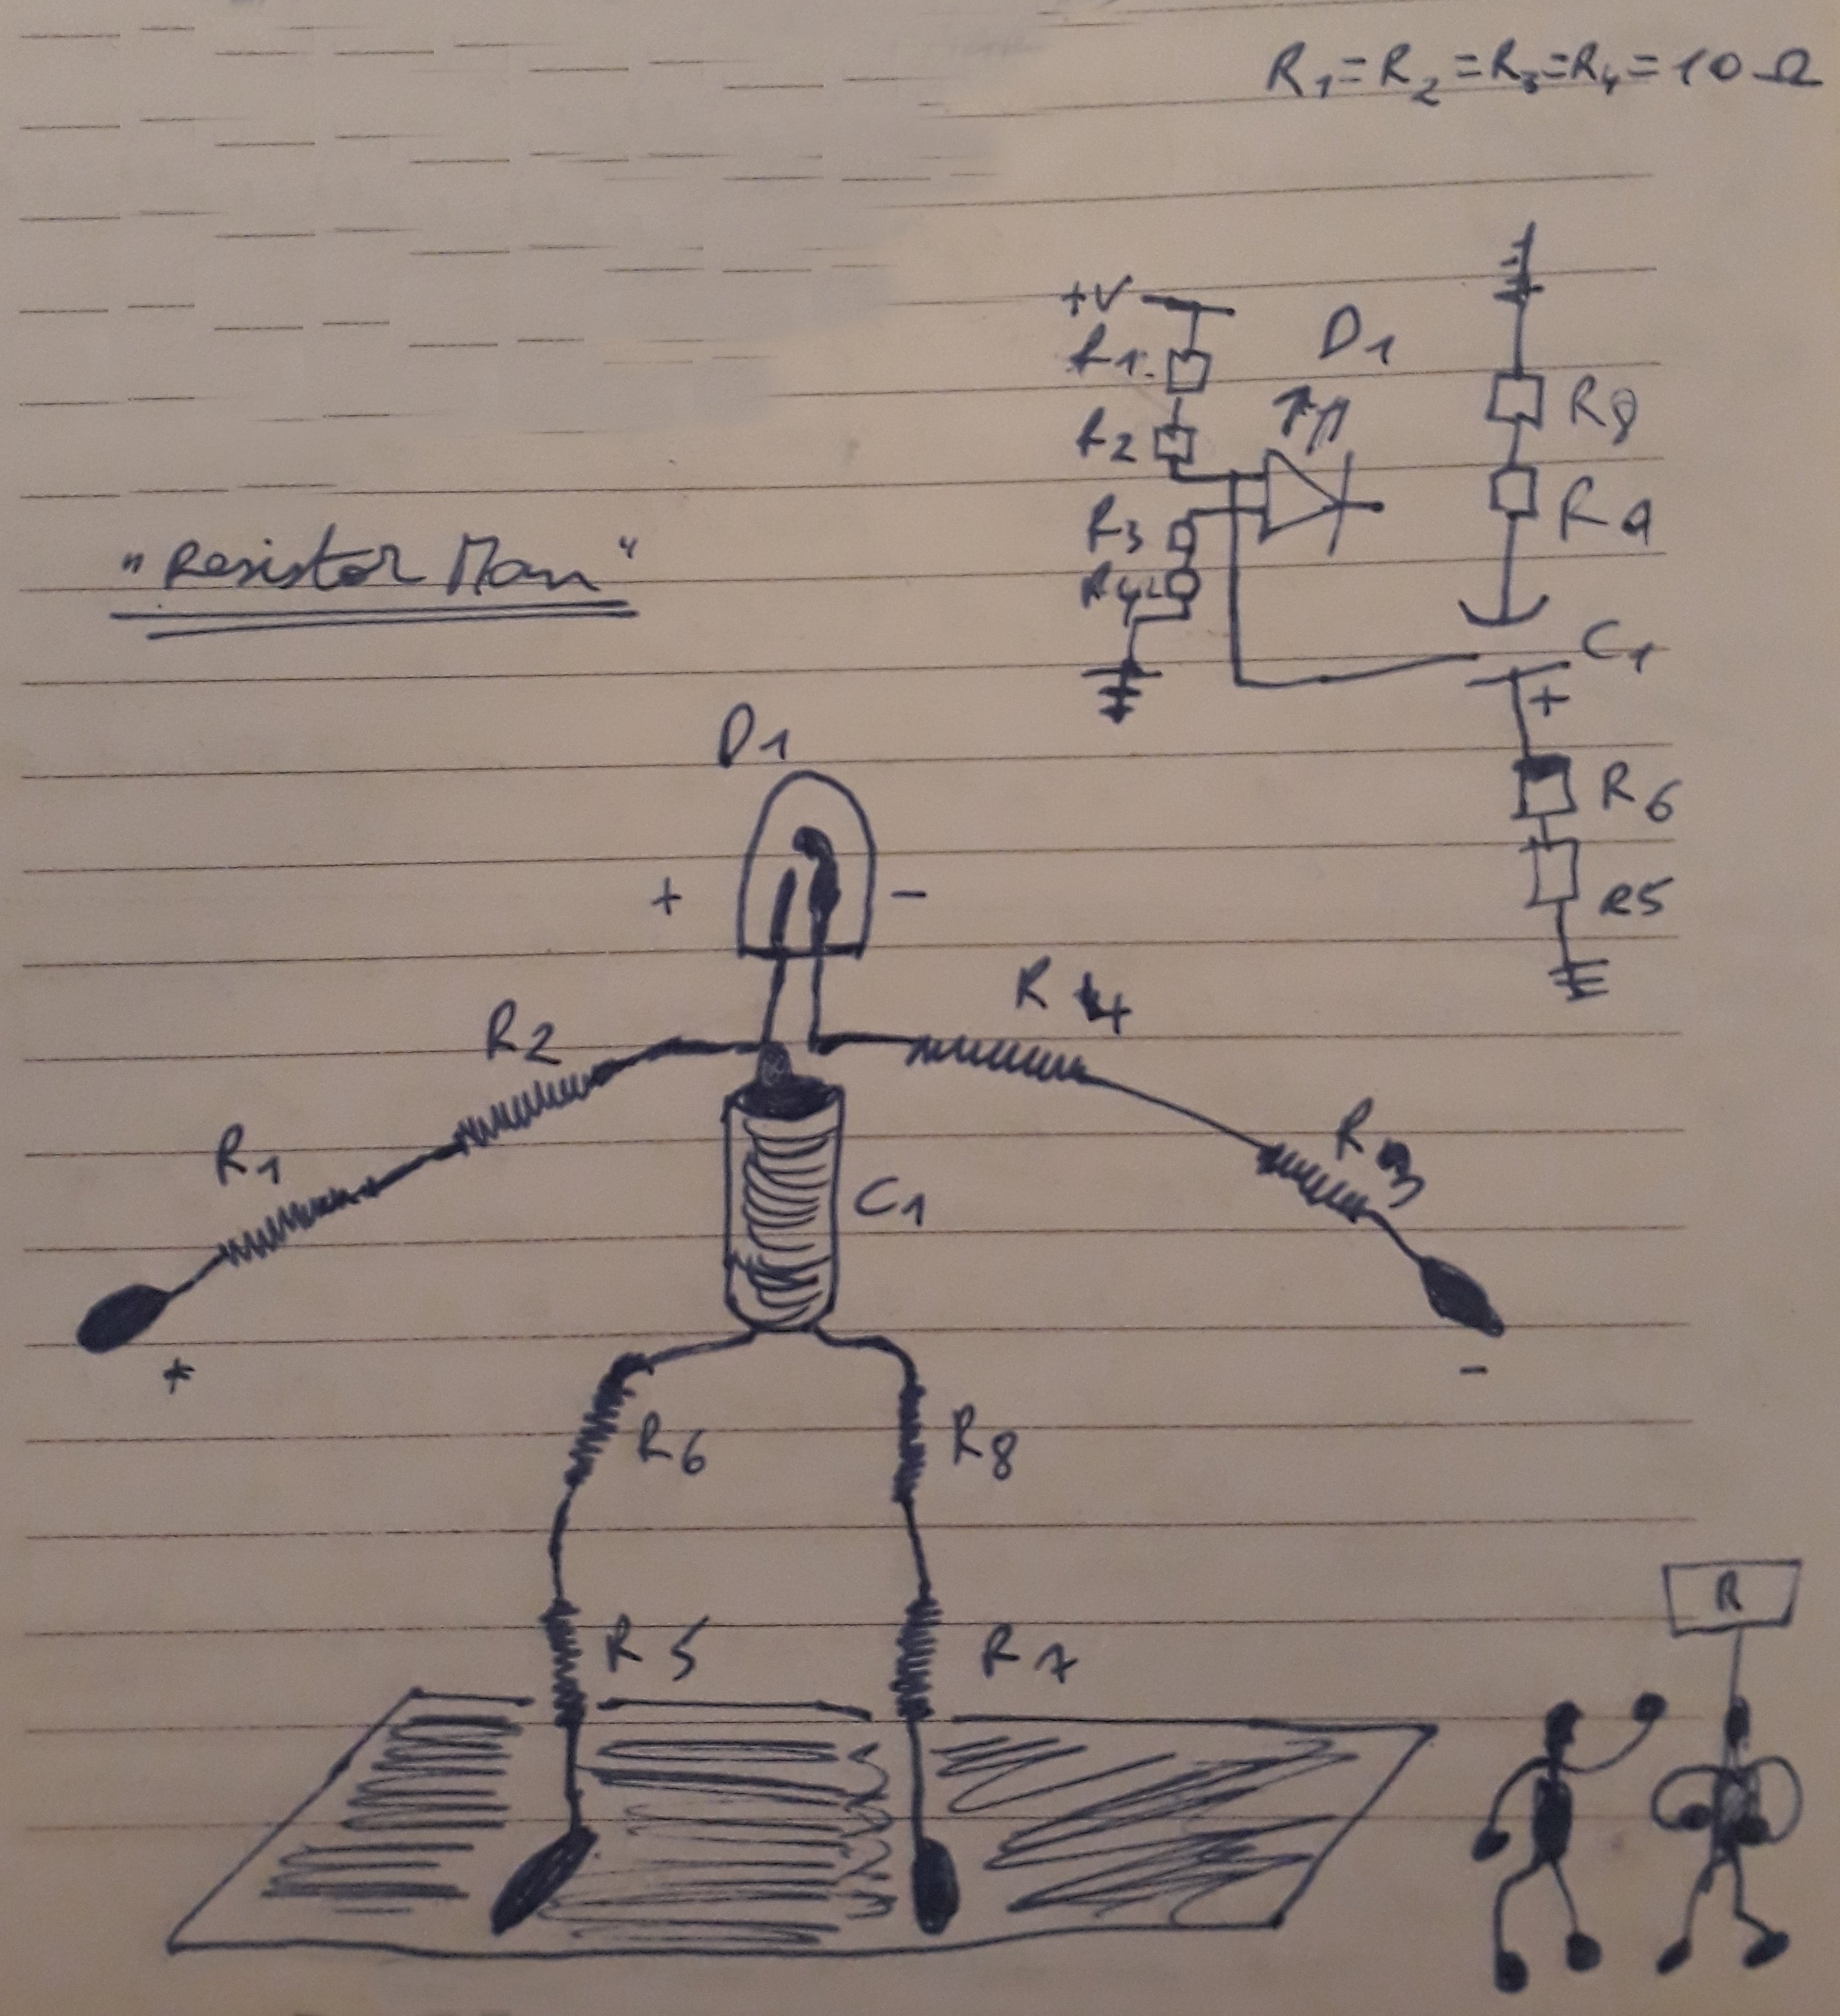 R1=R2=R3=R4=10Ω
+V
R1
D1
R2
R8
R9
R3
R4
C1
+
R6
R5
"Resistor Man"
D1
+ -
R2
R4
R1
R3
C1
+ -
R6
R8
R5
R7
R